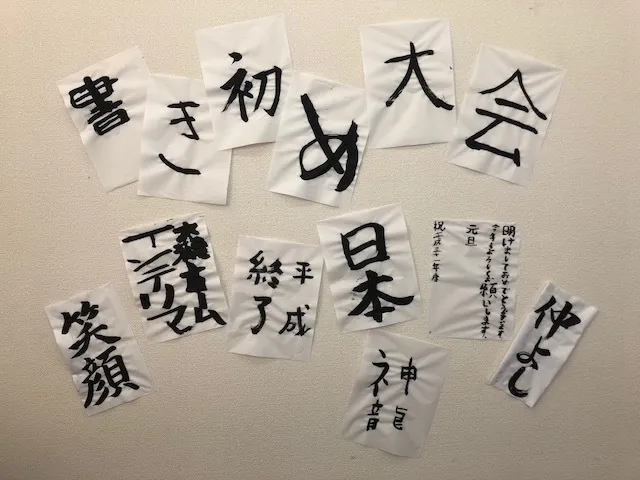 書き初め大会
笑顔
インテリマ
平成
終了
日本
明けましておめでとうございます
今年もよろしくお願いします。
元旦
祝平成三十一年
仲よし
神龍